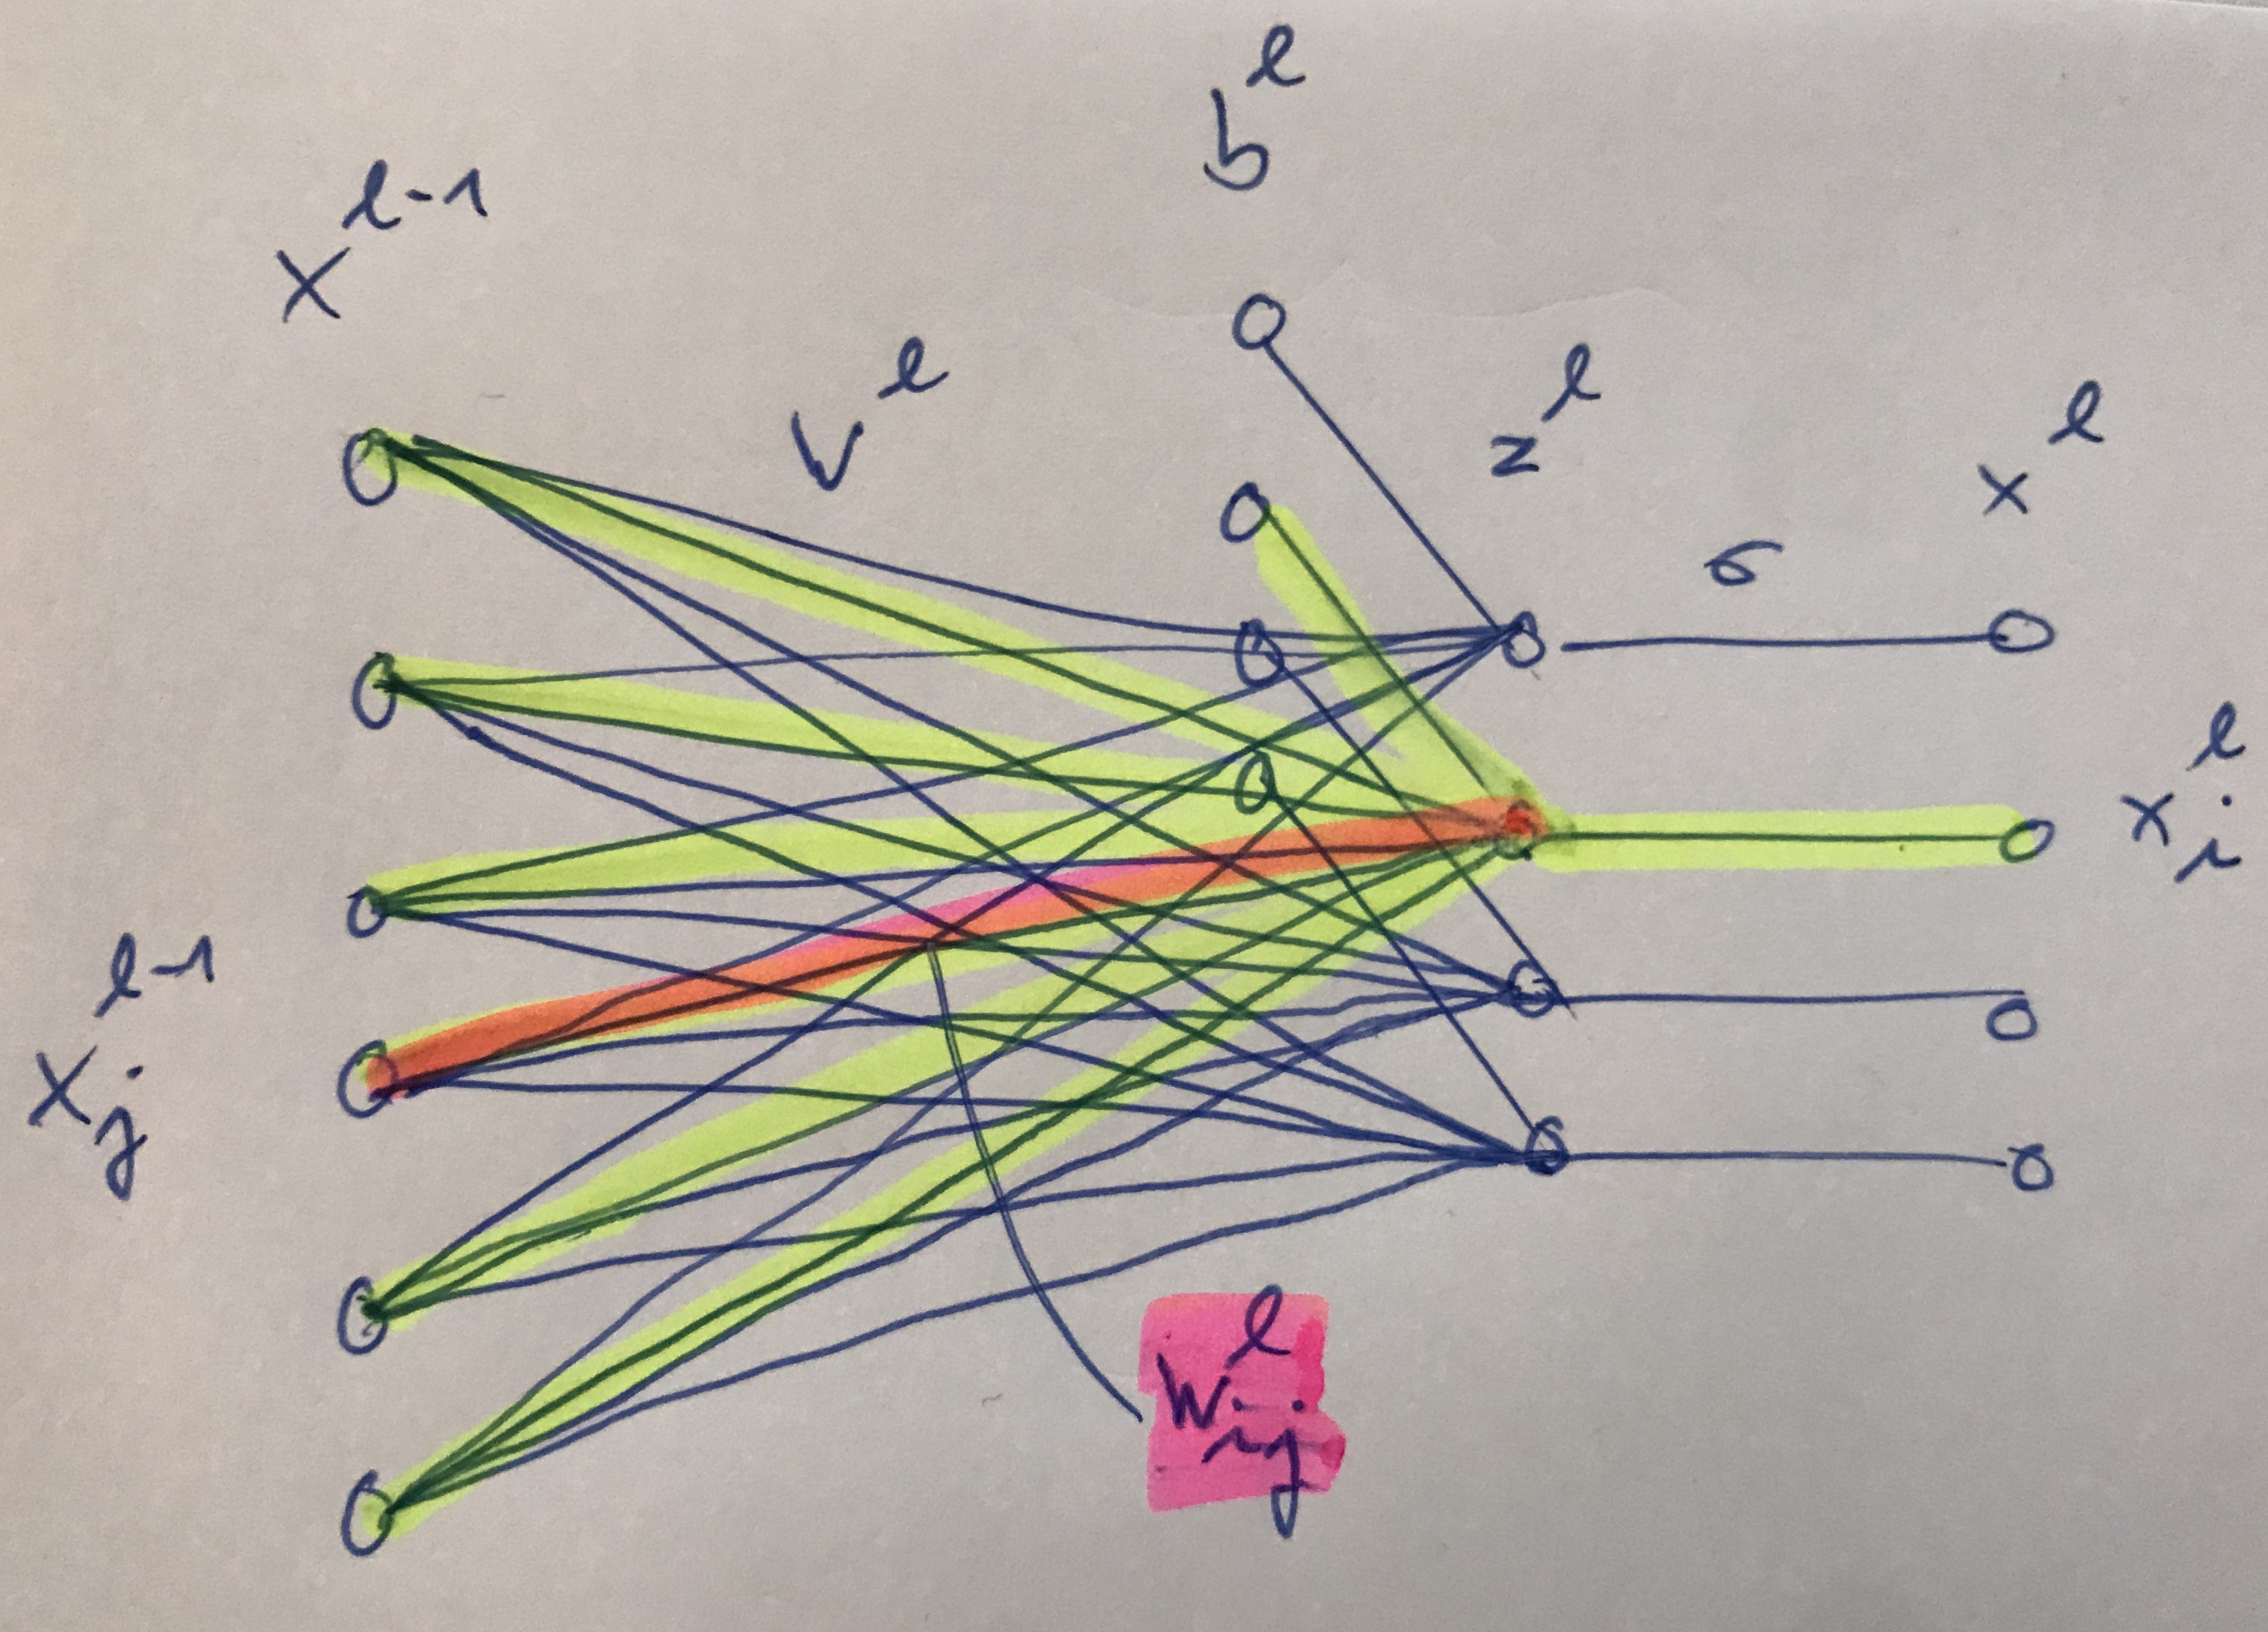 b^l
x^{l-1}
W^l
z^l
x^l
σ
x_i^l
x_j^{l-1}
W_{ij}^l